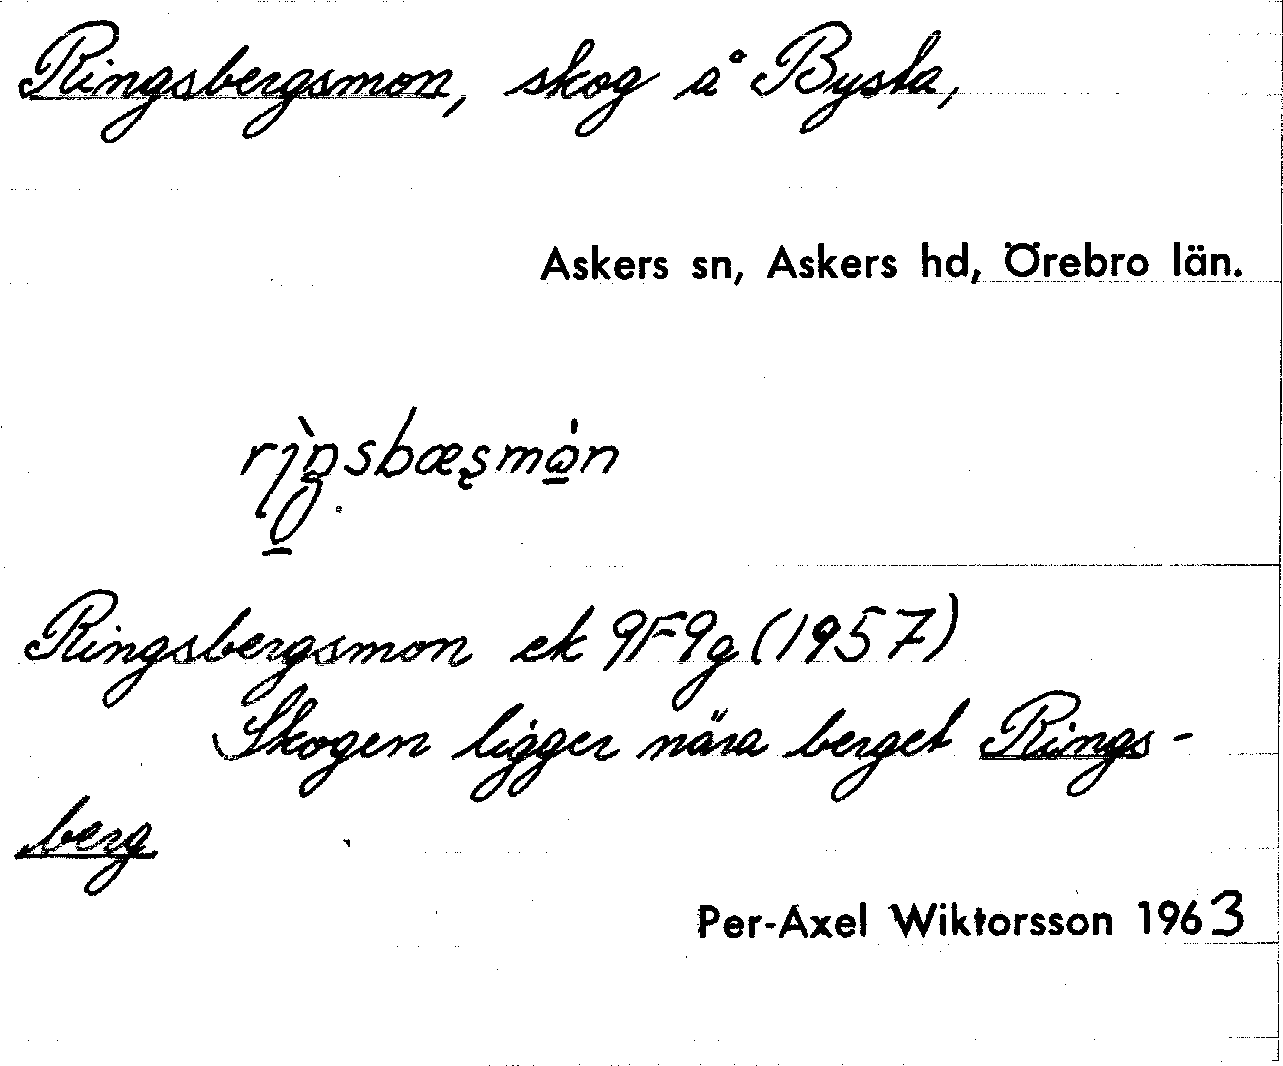 Ringsbergsmon, skog å Bysta,
Askers sn, Askers hd, Örebro län.
Ringsbergsmon ek 9F9g (1957)
Skogen ligger nära berget Rings-
berg
Per-Axel Wiktorsson 1963